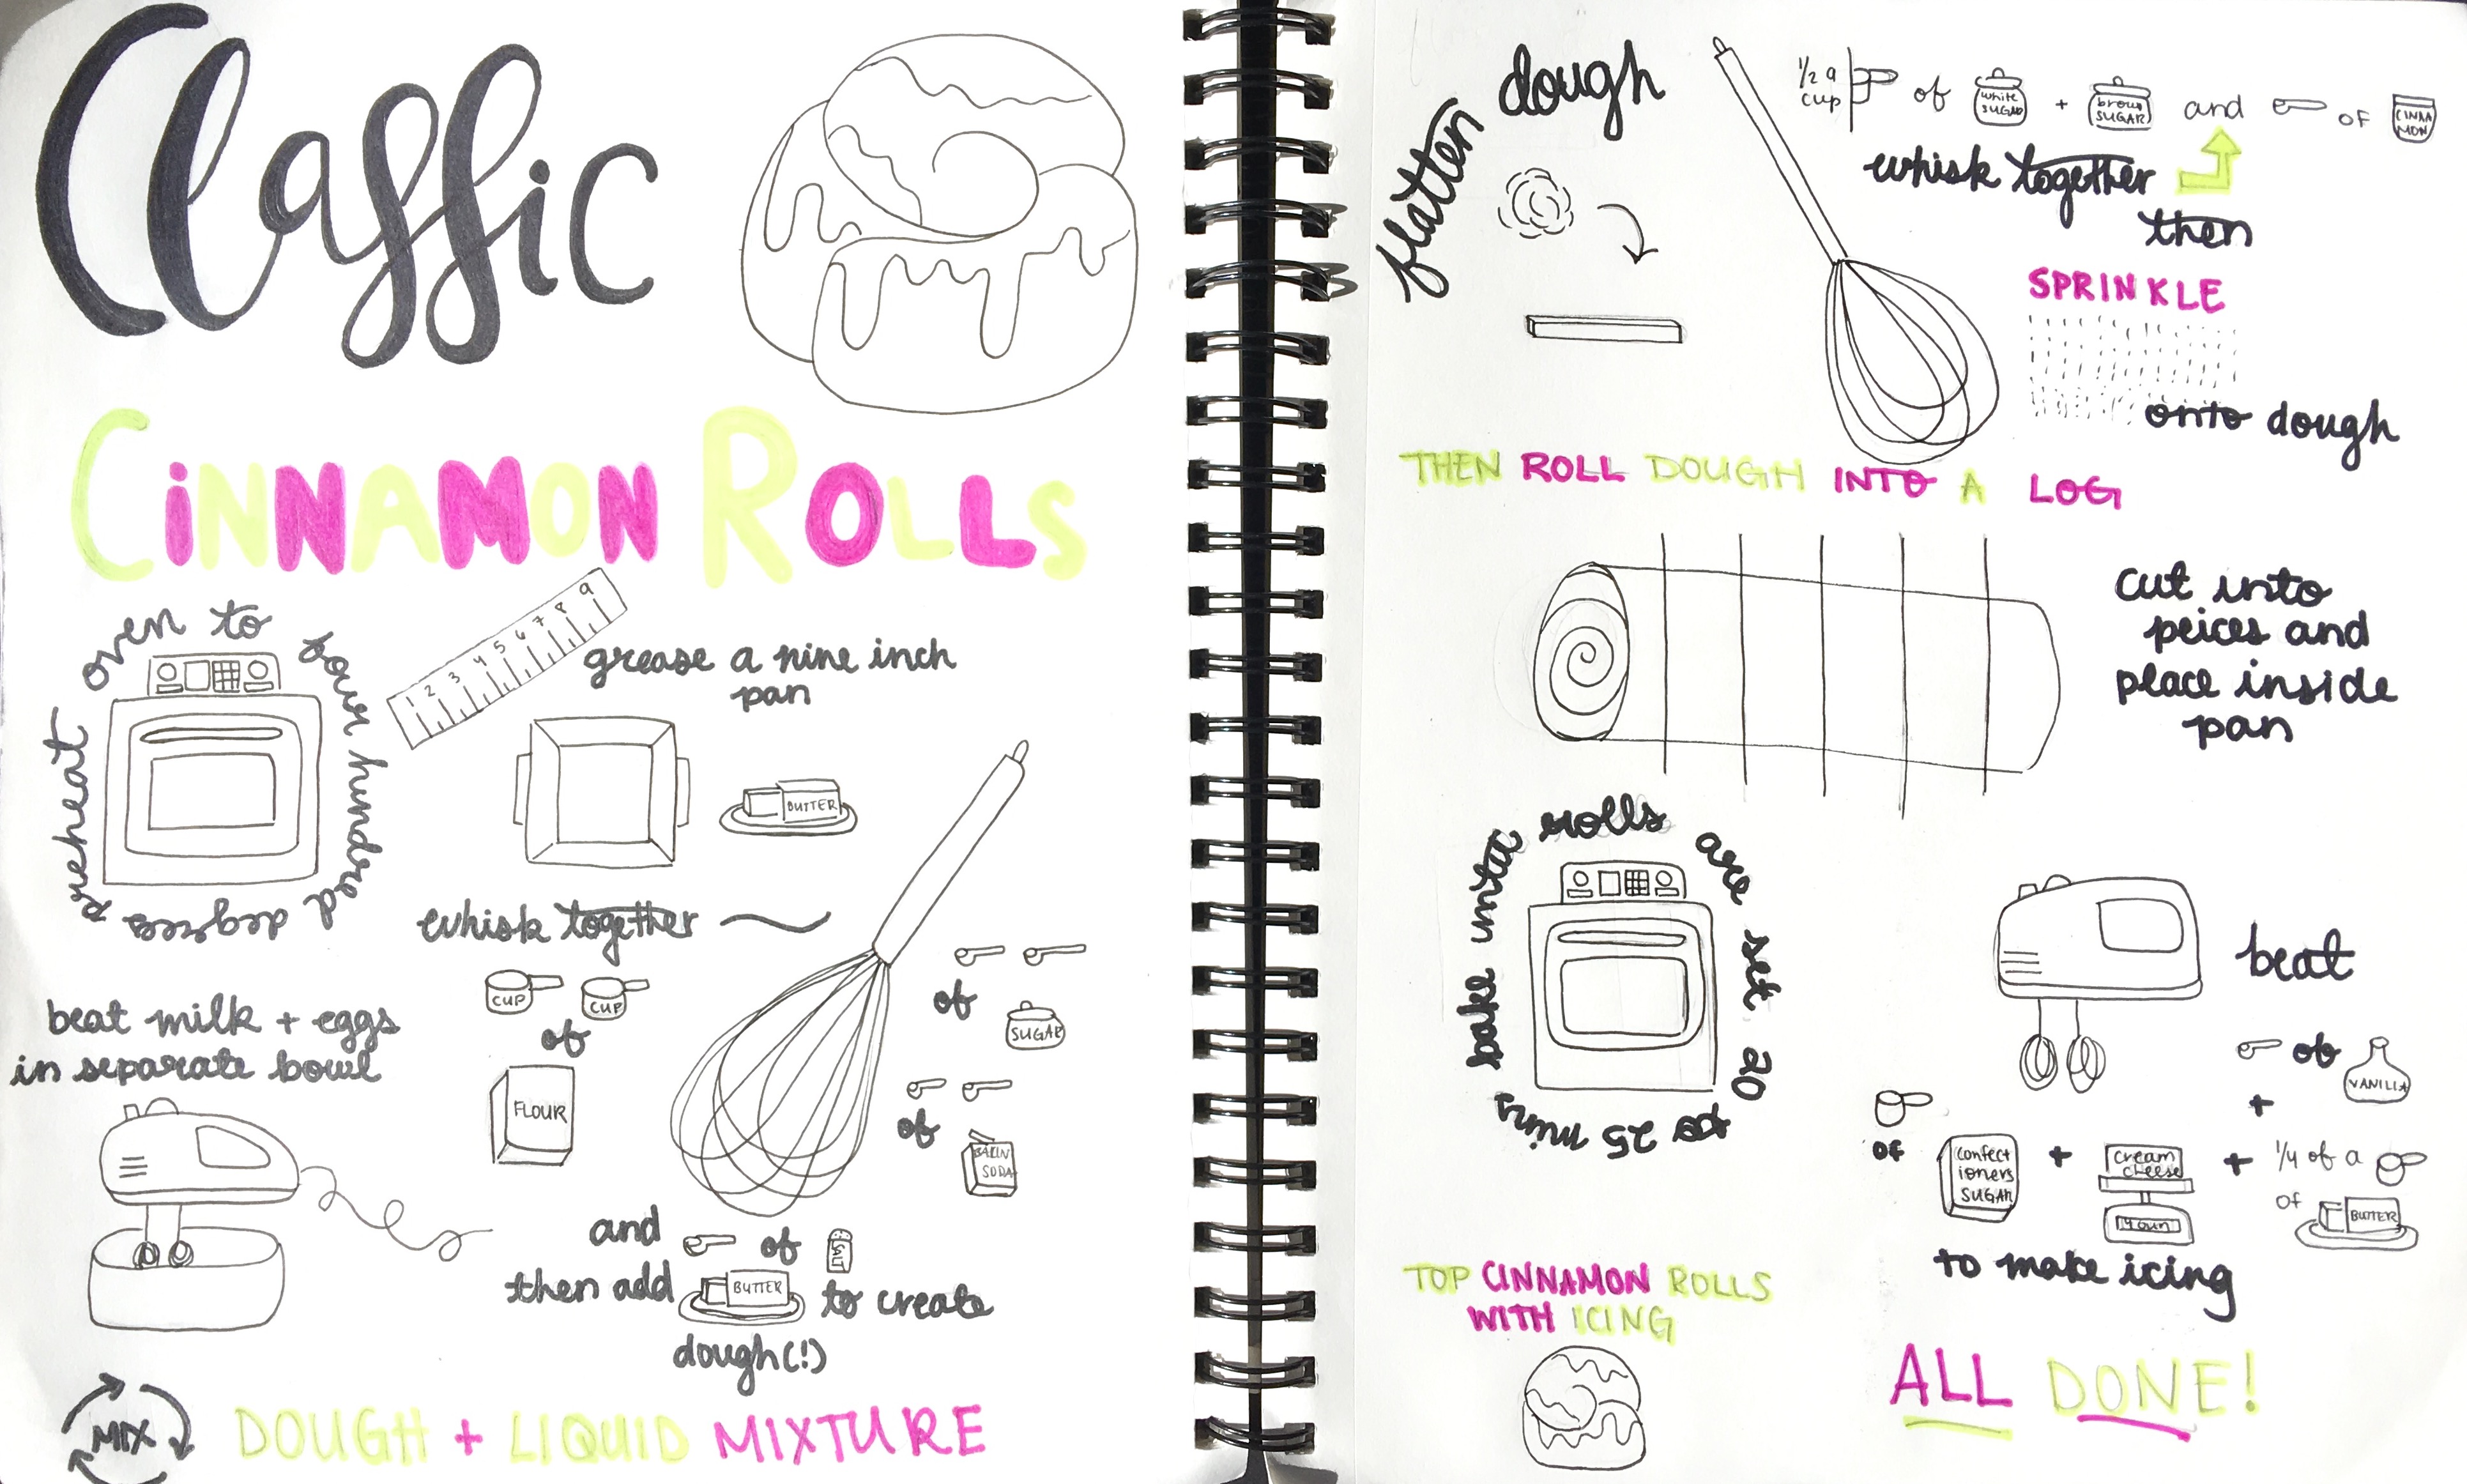 Classic
CINNAMON ROLLS
preheat oven to four hundred degrees
1 2 3 4 5 6 7 8 9
grease a nine inch
pan
BUTTER
whisk together
CUP CUP
of
FLOUR
of
SUGAR
of
BAKIN
SODA
and of SALT
then add BUTTER to create
dough(!)
beat milk + eggs
in separate bowl
MIX
DOUGH + LIQUID MIXTURE
flatten dough
1/2 a
cup of white
SUGAR + brown
SUGAR and of CINNA
MON
whisk together
then
SPRINKLE
onto dough
THEN ROLL DOUGH INTO A LOG
cut into
peices and
place inside
pan
bake unta rolls are set 20 to 25 mins
beat
of VANILLA
+
of confect
ioners
SUGAR + cream
cheese
4 oun + 1/4 of a
of BUTTER
to make icing
TOP CINNAMON ROLLS
WITH ICING
ALL DONE!